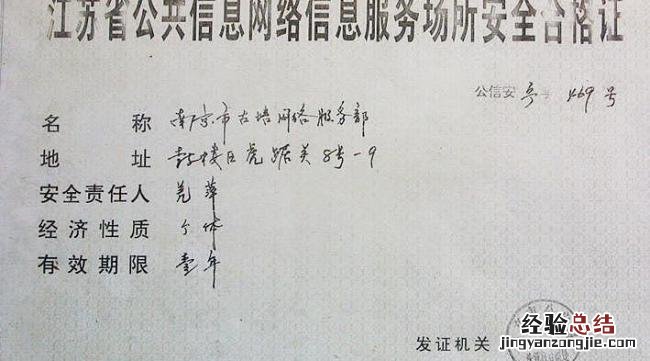 江苏省公共信息网络信息服务场所安全合格证
公信安 字 469 号
名 称 南京市古塔网络服务部
地 址 鼓楼区虎踞关8号-9
安全责任人 羌萍
经济性质 个体
有效期限 壹年
发证机关
经验总结
jingyanzongjie.com